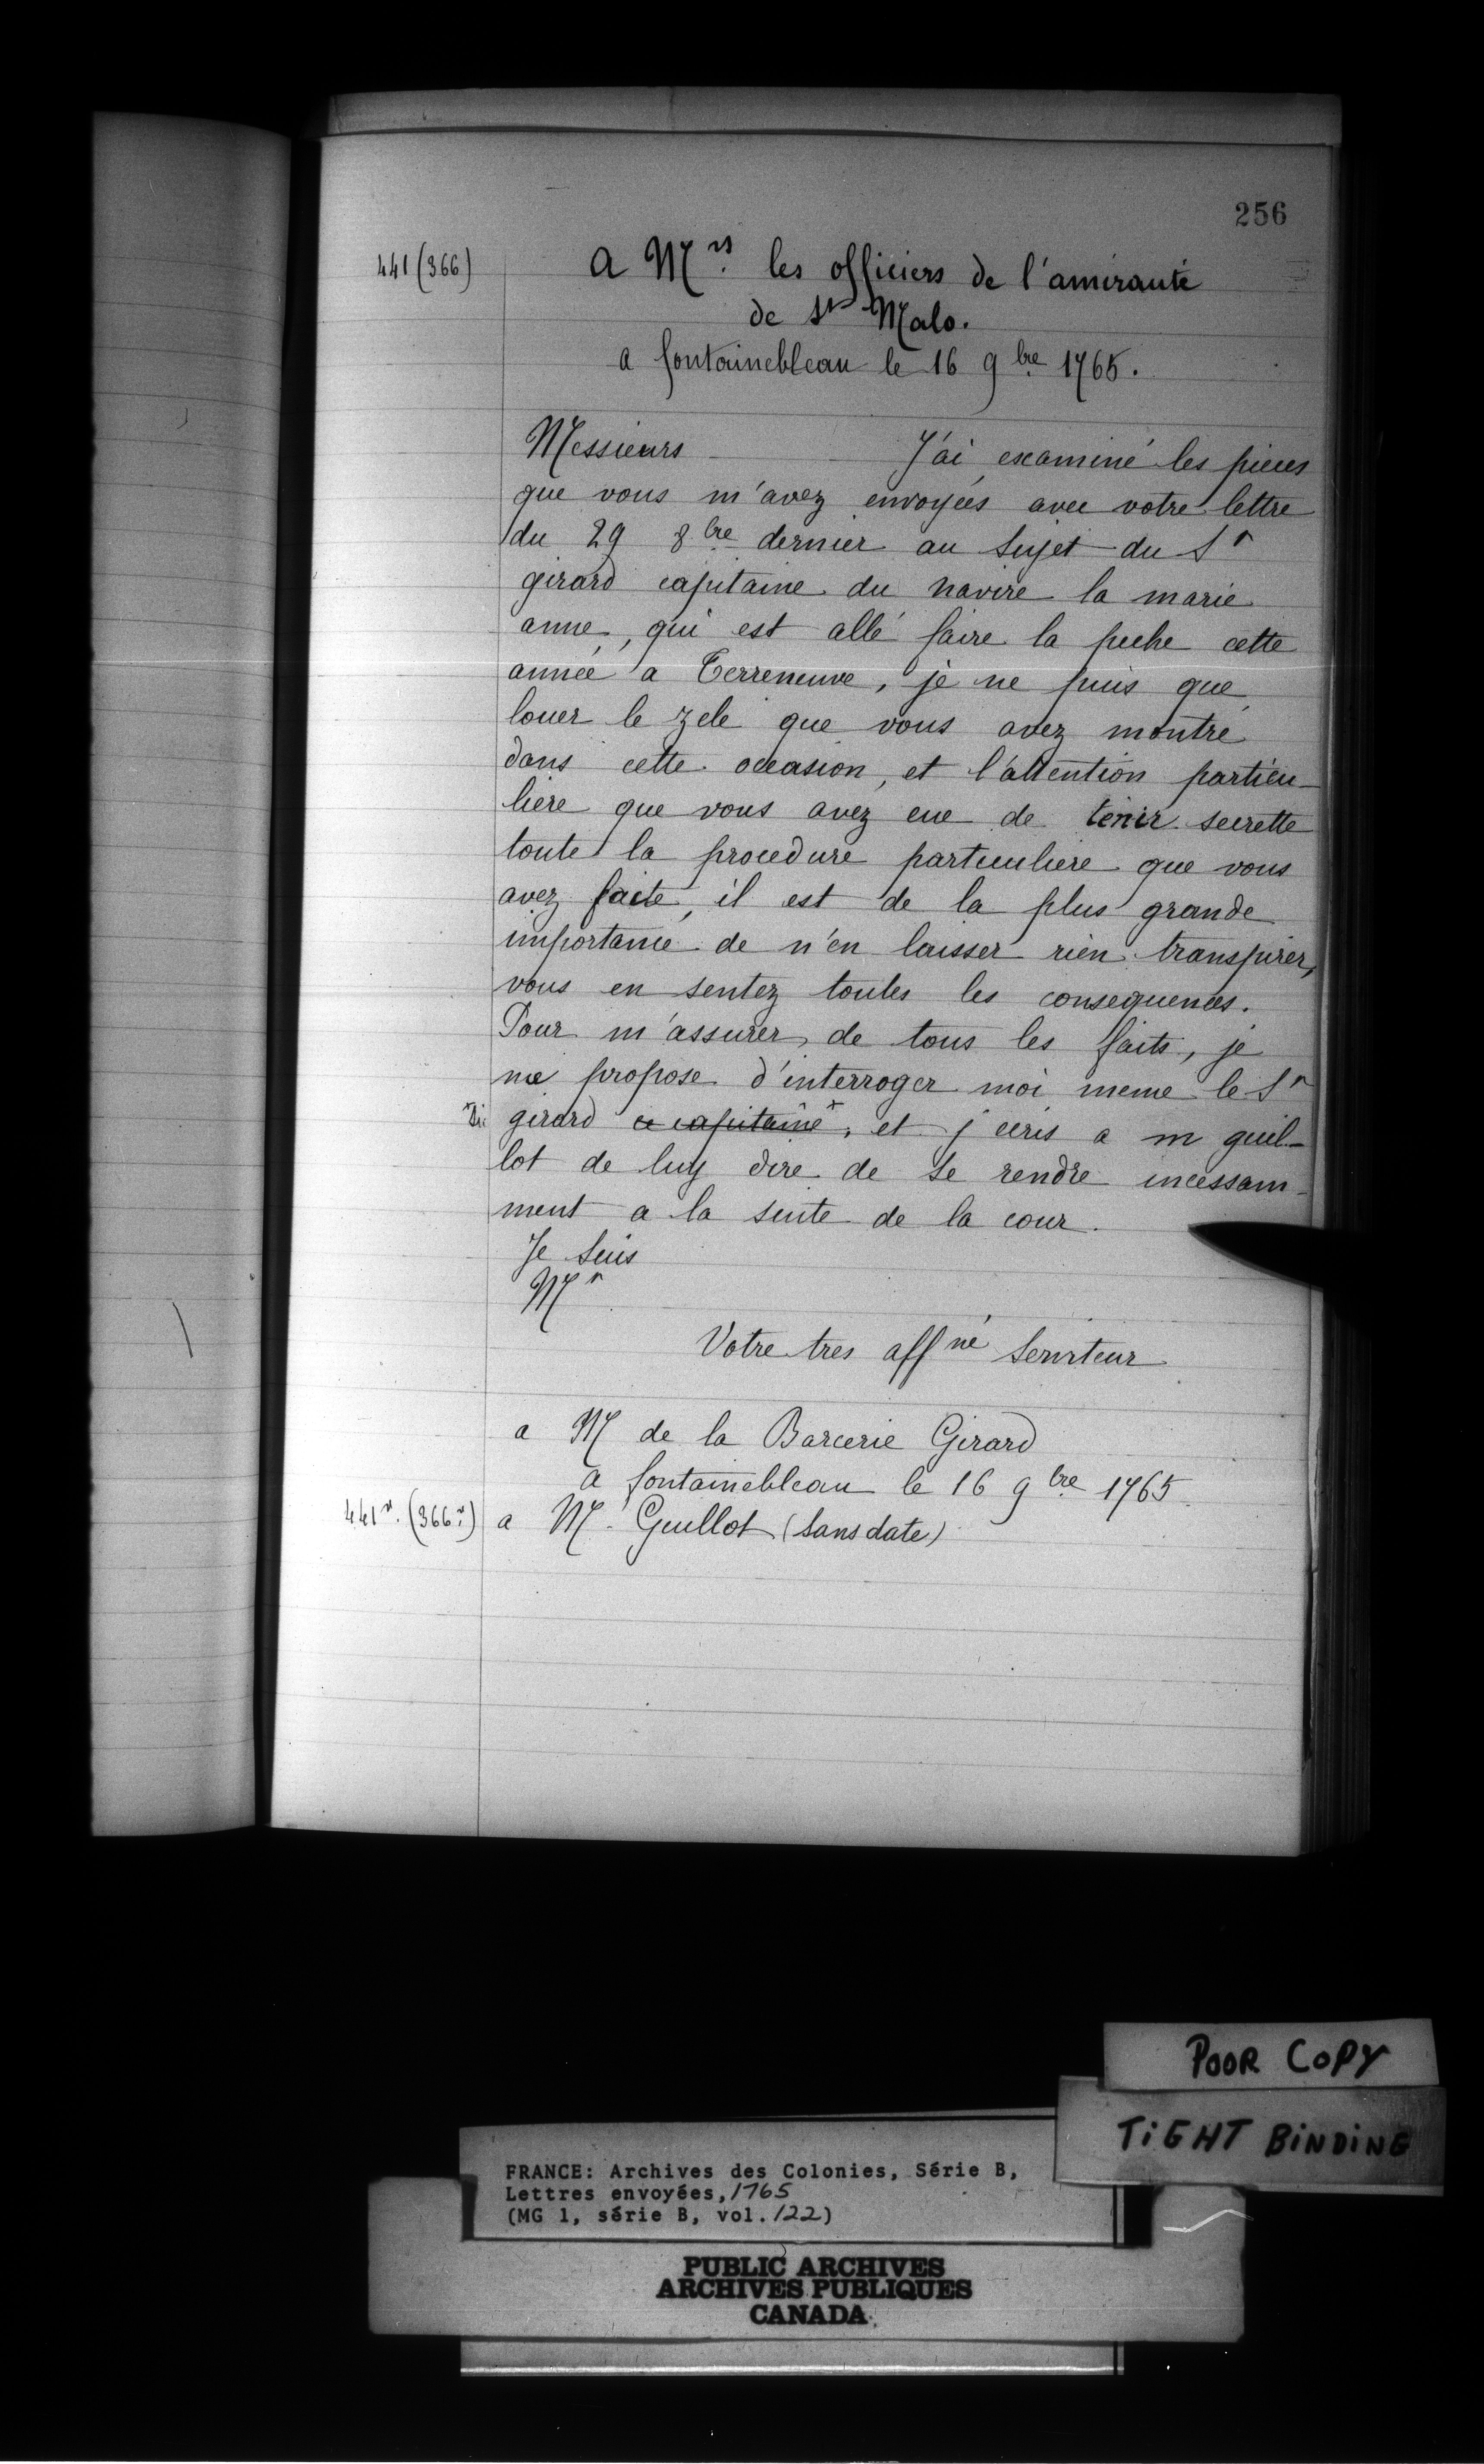 256
441 (366)
a M.rs les officiers de l'amirauté
de St Malo.
a fontainebleau le 16 9bre 1765.
Messieurs J'ai examiné les pieces
que vous m'avez envoyées avec votre lettre
du 29 8bre dernier au Sujet du Sr
girard capitaine du navire la marie
anne, qui est allé faire la peche cette
année a Terreneuve, je ne puis que
louer le zele que vous avez montré
dans cette occasion, et l'attention particu-
liere que vous avez eue de tenir secrette
toute la procedure particuliere que vous
avez faite, il est de la plus grande
importance de n'en laisser rien transpirer,
vous en sentez toutes les consequences.
Pour m'assurer de tous les faits, je
me propose d'interroger moi meme le Sr
*Sic girard ce capitaine*, et j'ecris a m guil-
lot de luy dire de Se rendre incessam-
ment a la suite de la cour.
Je Suis
Mr
Votre tres affné Serviteur
a M de la Barcerie Girard
a fontainebleau le 16 9bre 1765
441v. (366v.) a M. Guillot (Sans date)
POOR COPY
TIGHT BINDING
FRANCE: Archives des Colonies, Série B,
Lettres envoyées, 1765
(MG 1, série B, vol. 122)
PUBLIC ARCHIVES
ARCHIVES PUBLIQUES
CANADA